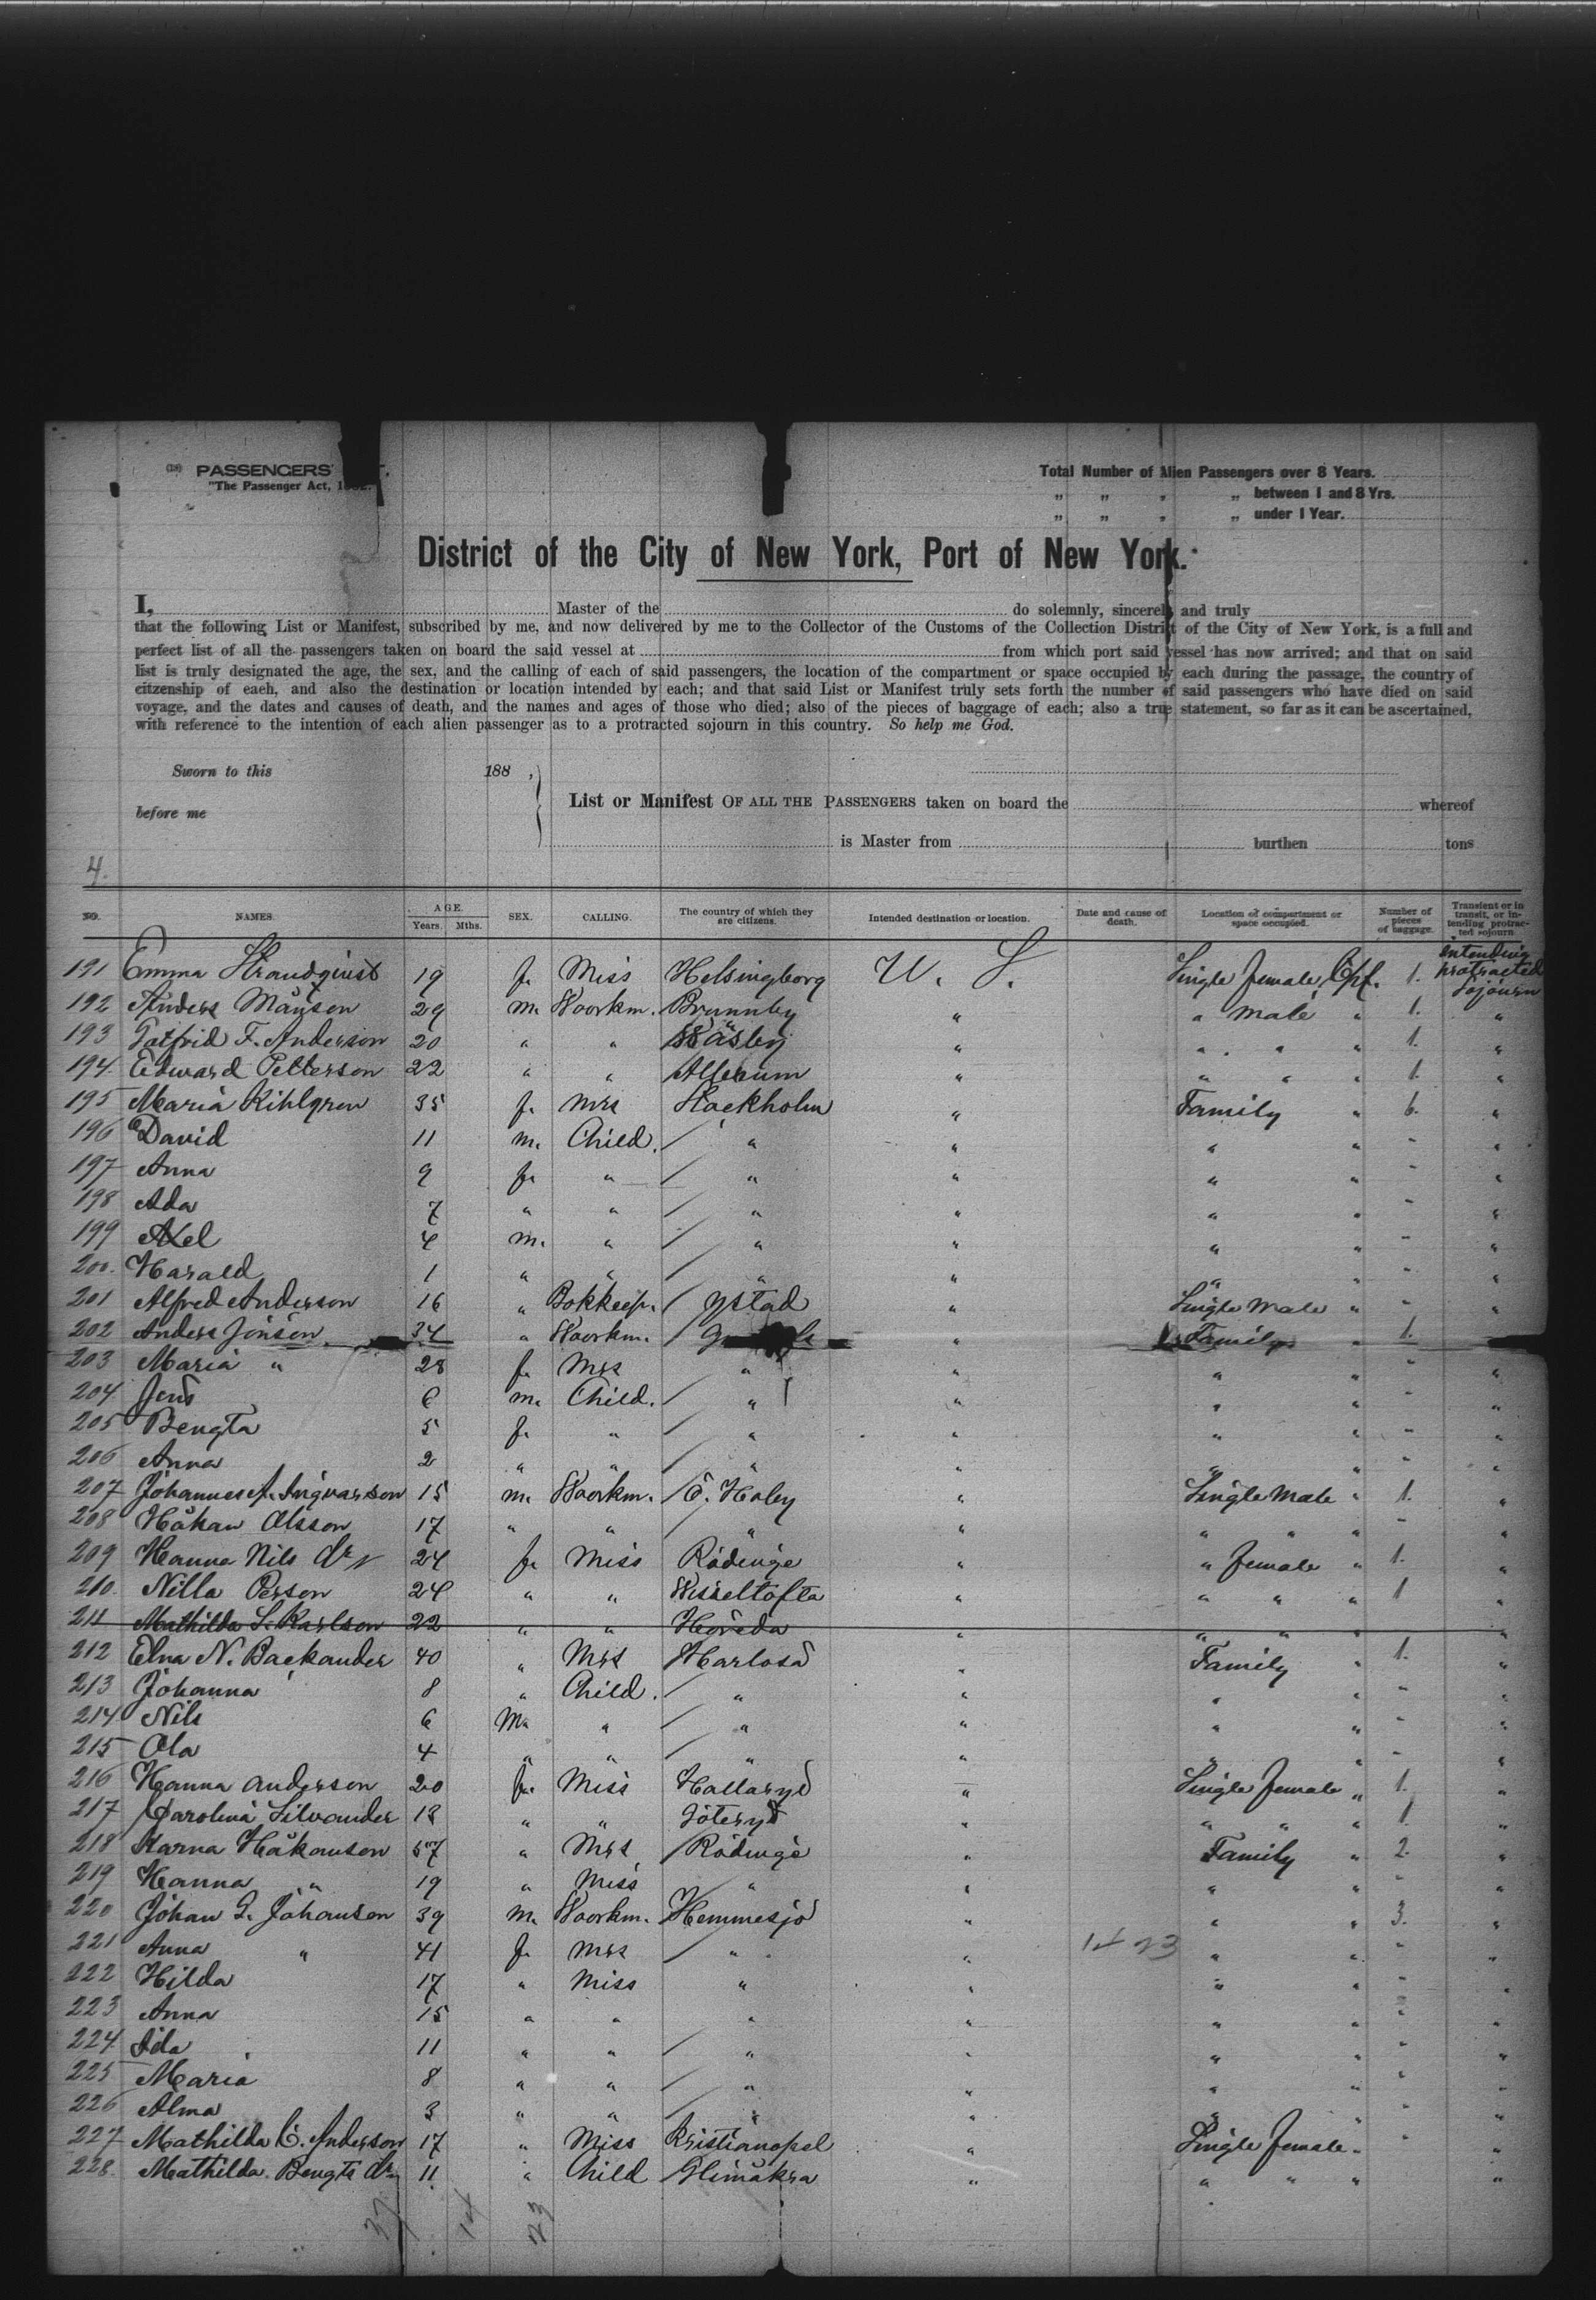 (18) PASSENGERS'
"The Passenger Act, 1882."
Total Number of Alien Passengers over 8 Years.
„ „ „ „ between 1 and 8 Yrs.
„ „ „ „ under 1 Year.
District of the City of New York, Port of New York.
I, Master of the do solemnly, sincerely and truly
that the following List or Manifest, subscribed by me, and now delivered by me to the Collector of the Customs of the Collection District of the City of New York, is a full and
perfect list of all the passengers taken on board the said vessel at from which port said vessel has now arrived; and that on said
list is truly designated the age, the sex, and the calling of each of said passengers, the location of the compartment or space occupied by each during the passage, the country of
citzenship of each, and also the destination or location intended by each; and that said List or Manifest truly sets forth the number of said passengers who have died on said
voyage, and the dates and causes of death, and the names and ages of those who died; also of the pieces of baggage of each; also a true statement, so far as it can be ascertained,
with reference to the intention of each alien passenger as to a protracted sojourn in this country. So help me God.
Sworn to this 188 ,
before me
List or Manifest OF ALL THE PASSENGERS taken on board the whereof
is Master from burthen tons
4.
NO. NAMES. AGE. Years. Mths. SEX. CALLING. The country of which they are citizens. Intended destination or location. Date and cause of death. Location of compartment or space occupied. Number of pieces of baggage. Transient or in transit, or intending protracted sojourn
191 Emma Strandqvist 19 f. Miss Helsingborg U. S. Single female Cpt. 1. intending protracted sojourn
192 Anders Månson 29 m. Woorkm. Brunnby " " male " 1. "
193 Gotfrid F. Anderson 20 " " Wäsby " " " " 1. "
194 Edward Petterson 22 " " Allerum " " " " 1. "
195 Maria Kihlgren 35 f. Mrs Stockholm " Family " 6. "
196 David 11 m. Child. / " " " " - "
197 Anna 9 f. " / " " " " - "
198 Ada 7 " " / " " " " - "
199 Axel 4 m. " / " " " " - "
200. Harald 1 " " / " " " " - "
201 Alfred Anderson 16 " Bokkeep. / Ystad " Single Male " - "
202 Anders Jönson 34 " Woorkm. / " Family " 1.
203 Maria " 28 f. Mrs " " " " - "
204 Jens 6 m. Child. / " " " " - "
205 Bengta 5 f. " / " " " " - "
206 Anna 2 " " / " " " " - "
207 Johannes A. Ingvarson 15 m. Woorkm. / Ö. Hoby " Single Male " 1. "
208 Håkan Olsson 17 " " / " " " " " - "
209 Hanna Nils dr 24 f. Miss Rödinge " " female " 1. "
210. Nilla Person 24 " " Wisseltofta " " " " 1 "
211 Mathilda S. Karlson 22 " " Horeda " " " " "
212 Elna N. Backander 40 " Mrs Harlosa " Family " 1. "
213 Johanna 8 " Child. / " " " " - "
214 Nils 6 M. " / " " " " - "
215 Ola 4 " " / " " " " - "
216 Hanna Anderson 20 f. Miss Hallaryd " Single female " 1. "
217 Carolina Silvander 18 " " Göteryd " " " " 1. "
218 Karna Håkanson 57 " Mrs / Rödinge " Family " 2. "
219 Hanna " 19 " Miss " " " " - "
220 Johan G. Johanson 39 m. Woorkm. Hemmesjö " " " 3. "
221 Anna " 41 f. Mrs / " " 14 23 " " - "
222 Hilda 17 " Miss " " " " - "
223 Anna 15 " " " " " " - "
224 Ida 11 " " / " " " " - "
225 Maria 8 " " / " " " " - "
226 Alma 3 " " / " " " " - "
227 Mathilda C. Anderson 17 " Miss Kristianopel " Single female " - "
228. Mathilda Bengts dr 11 " Child Glimåkra " " " " "
37 14 23